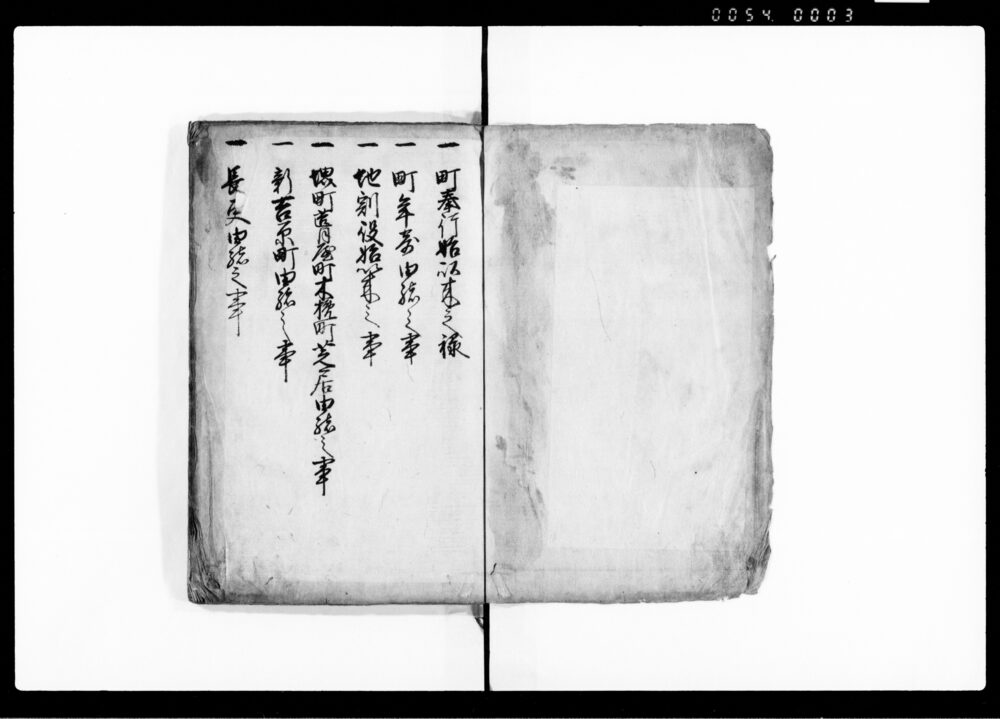 0054 0003
一 町奉行始以来之禄
一 町年寄由緒之事
一 地割役始以来之事
一 堺町葺屋町木挽町芝居由緒之事
一 新吉原町由緒之事
一 長吏由緒之事